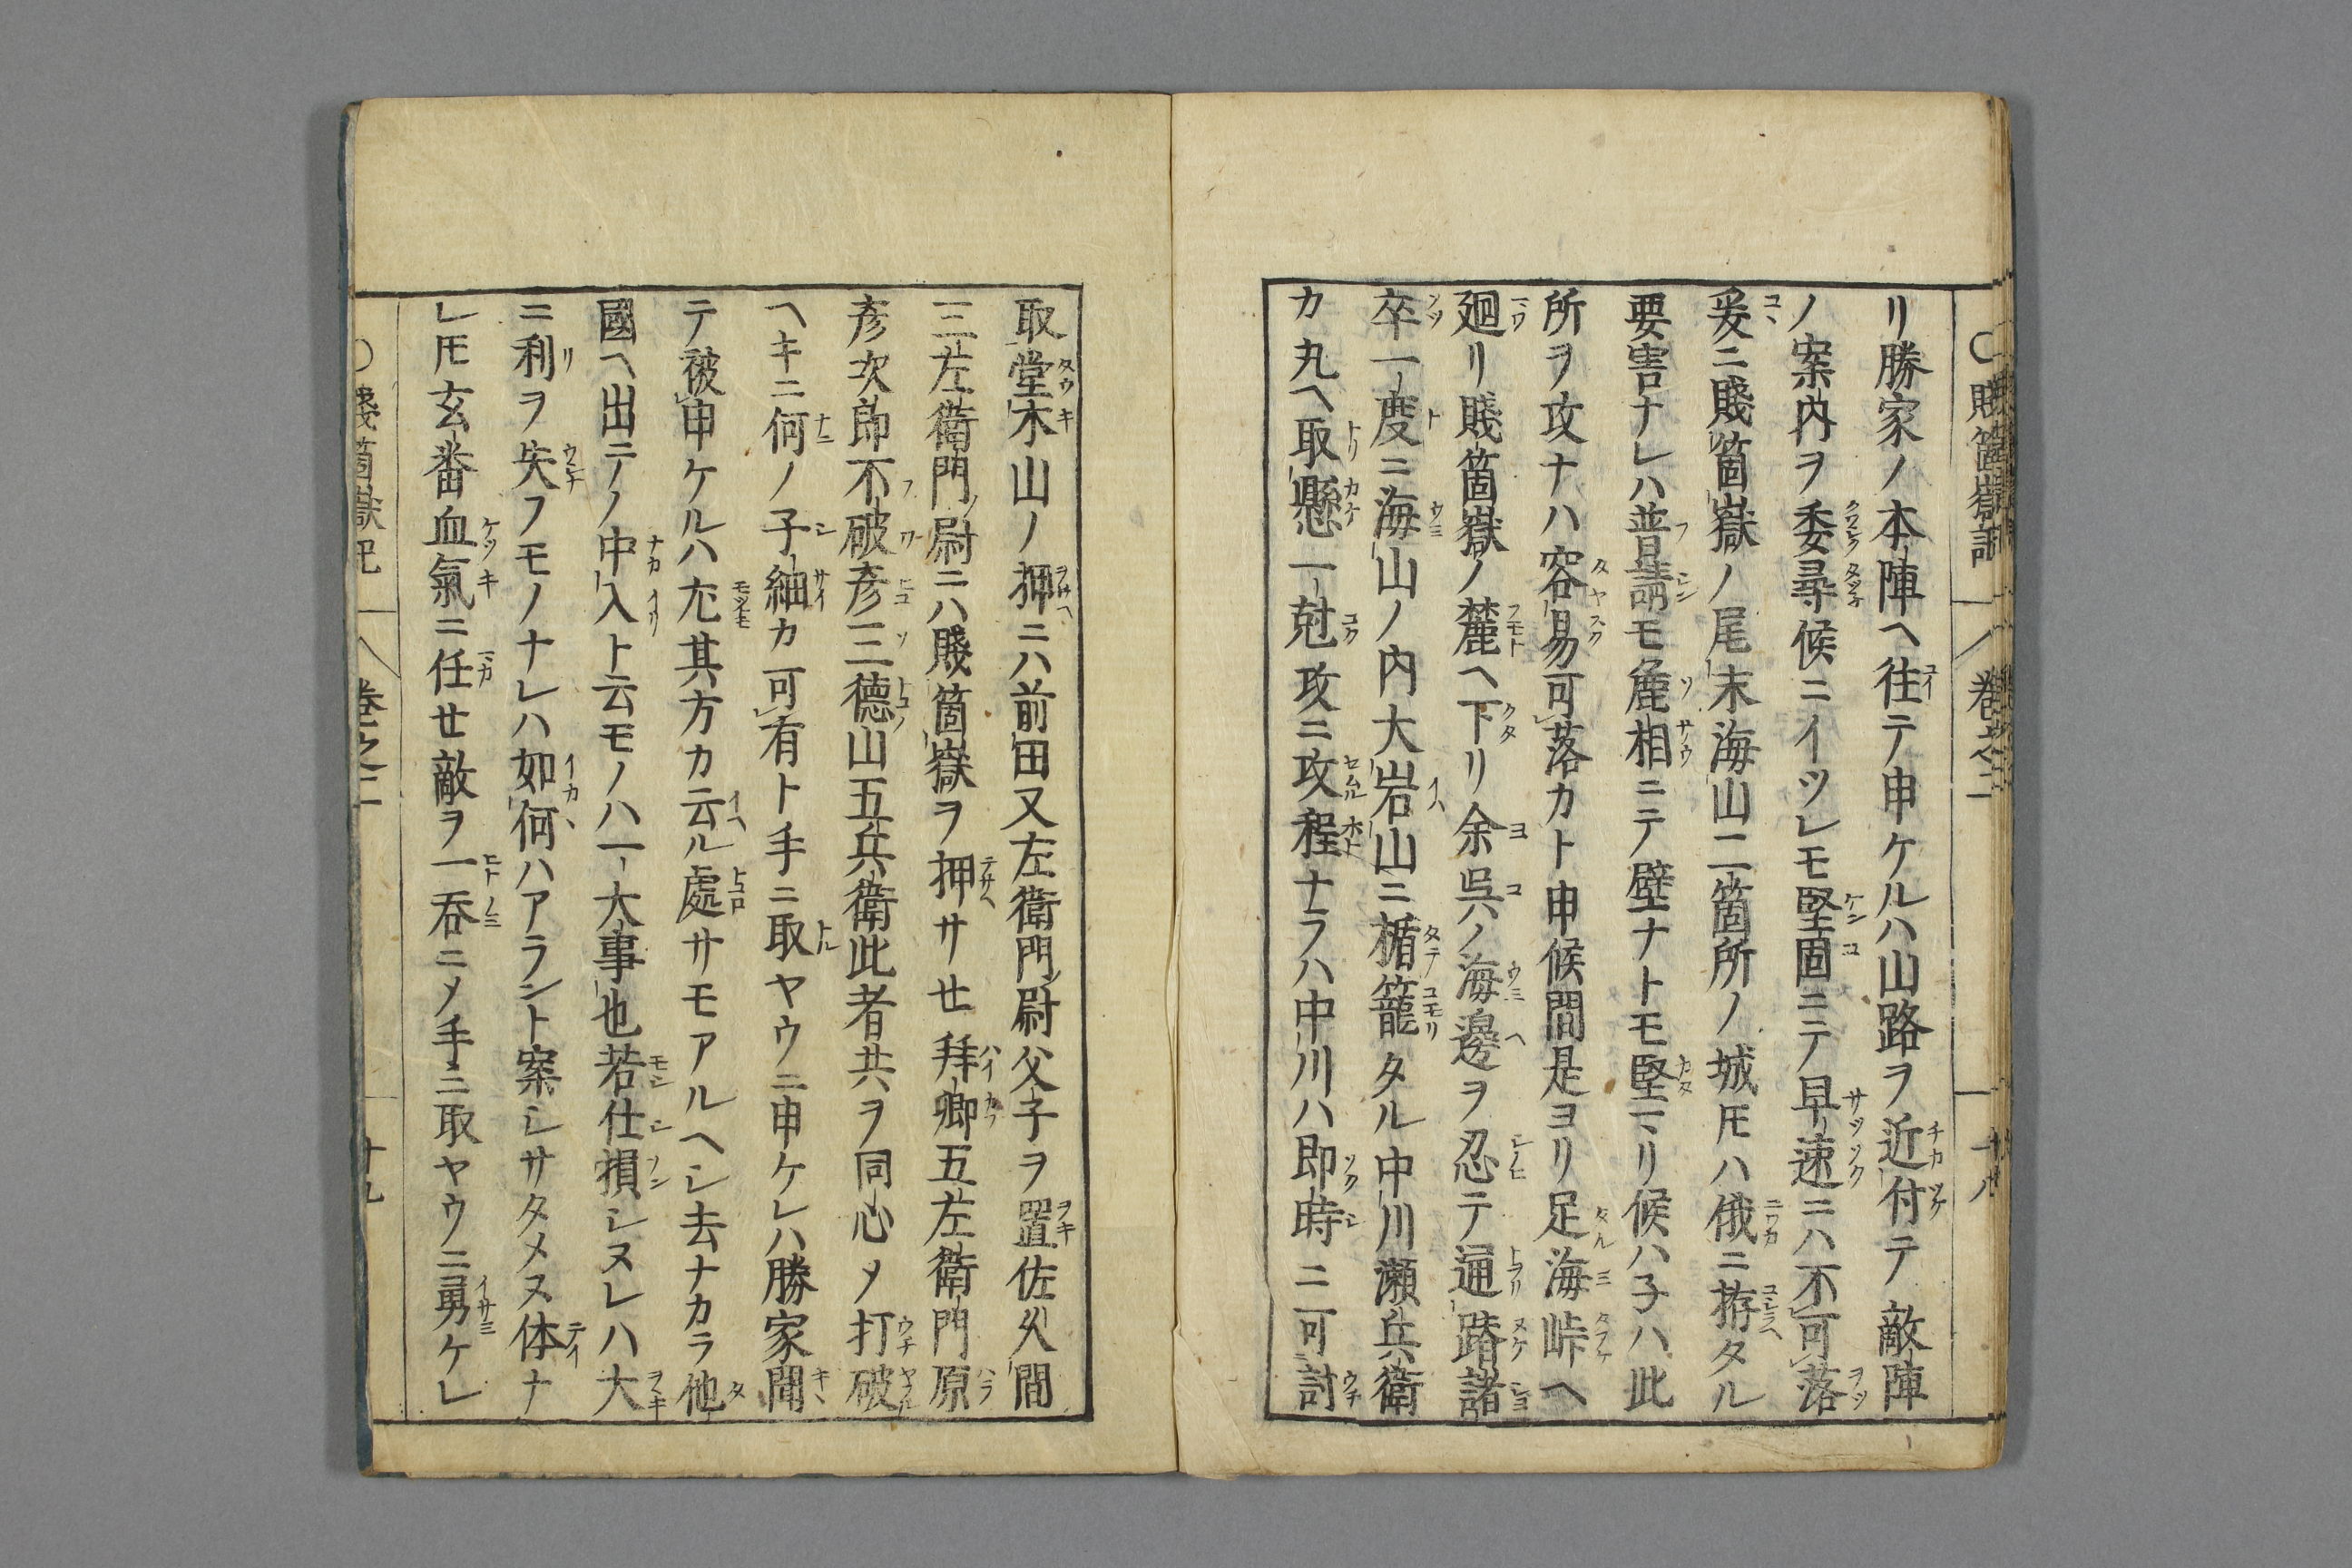 〇賤箇嶽記 卷之二 十八
リ勝家ノ本陣ヘ往テ申ケルハ山路ヲ近付テ敵陣
ノ案内ヲ委尋候ニイツレモ堅固ニテ早速ニハ不可落
爰ニ賤箇嶽ノ尾末海山二箇所ノ城𪜈ハ俄ニ拵タル
要害ナレハ普請モ麁相ニテ壁ナトモ堅マリ候ハ子ハ此
所ヲ攻ナハ容易可落カト申候間是ヨリ足海峠ヘ
廻リ賤箇嶽ノ麓ヘ下リ余呉ノ海邊ヲ忍テ通踏諸
卒一度ニ海山ノ内大岩山ニ楯籠タル中川瀬兵衛
カ丸ヘ取懸一尅攻ニ攻程ナラハ中川ハ即時ニ可討
取堂木山ノ押ニハ前田又左衛門尉父子ヲ置佐久間
三左衛門尉ニハ賤箇嶽ヲ押サセ拜郷五左衛門原
彦次郎不破彦三德山五兵衛此者共ヲ同心〆打破
ヘキニ何ノ子細カ可有ト手ニ取ヤウニ申ケレハ勝家聞
テ被申ケルハ尤其方カ云ル處サモアルヘシ去ナカラ他
國ヘ出ニノ中入ト云モノハ一大事也若仕損シヌレハ大
ニ利ヲ失フモノナレハ如何ハアラント案シサタメヌ体ナ
レ𪜈玄番血氣ニ任セ敵ヲ一吞ニ〆手ニ取ヤウニ勇ケレ
〇賤箇嶽記 卷之二 十九